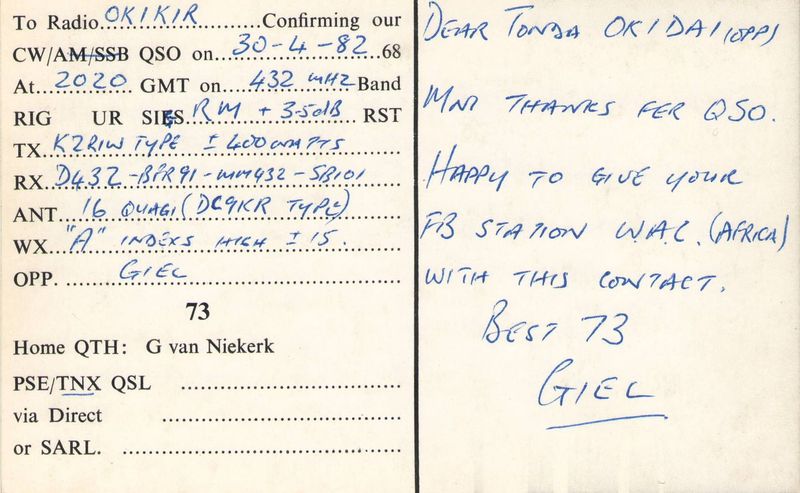 To Radio OK1KIR Confirming our
CW/AM/SSB QSO on 30-4-82 68
At 2020 GMT on 432 MHz Band
RIG UR SIGS RM + 3.5dB RST
TX K2RIW TYPE ± 400 WATTS
RX D432-BFR91-MM432-SB101
ANT 16 QUAGI (DC9KR TYPE)
WX "A" INDEXS HIGH ± 15.
OPP. GIEL
73
Home QTH: G van Niekerk
PSE/TNX QSL
via Direct
or SARL.
DEAR TONDA OK1DAI (OPP)
MNI THANKS FER QSO.
HAPPY TO GIVE YOUR
FB STATION W.A.C. (AFRICA)
WITH THIS CONTACT.
BEST 73
GIEL